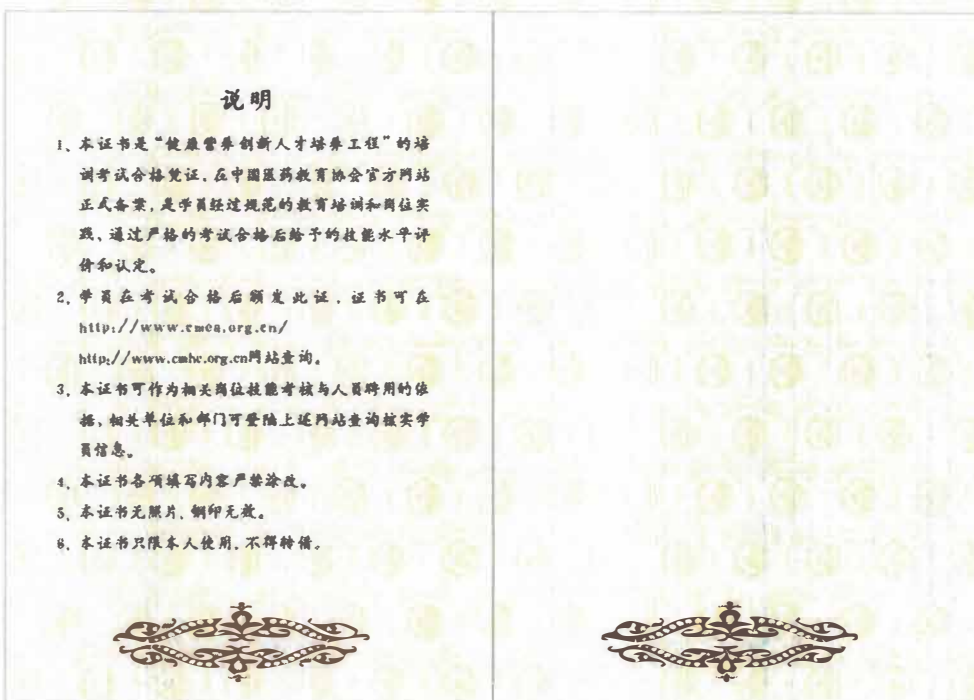 说明
1、本证书是“健康营养创新人才培养工程”的培
训考试合格凭证,在中国医药教育协会官方网站
正式备案,是学员经过规范的教育培训和岗位实
践、通过严格的考试合格后给予的技能水平评
价和认定。
2、学员在考试合格后颁发此证,证书可在
http://www.cmea.org.cn/
http://www.cmhc.org.cn网站查询。
3、本证书可作为相关岗位技能考核与人员聘用的依
据,相关单位和部门可登陆上述网站查询核实学
员信息。
4、本证书各项填写内容严禁涂改。
5、本证书无照片、钢印无效。
6、本证书只限本人使用,不得转借。